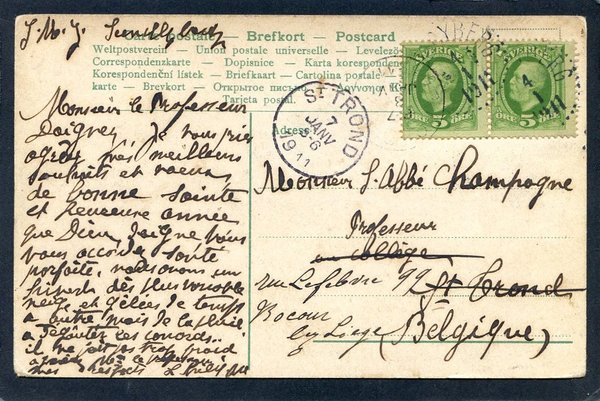 Carte postale — Brefkort — Postcard
Weltpostverein — Union postale universelle — Levelező
Correspondenzkarte — Dopisnice — Karta korespondenc
Korespondenční lístek — Briefkaart — Cartolina postale
karte — Brevkort — Открытое письмо
Tarjeta postal
Adresse
SVERIGE SVERIGE
5 ÖRE 5 ÖRE
ST TROND
7
JANV
1911
J. M. J.
Monsieur le Professeur
Daignez Je vous prie
agréer mes meilleurs
souhaits et voeux
de bonne sainte
et heureuse année
que Dieu daigne vous
vous accorder santé
parfaite, nous avons un
neige et gelées le temps
à autre mais la pluie
il ne fait pas trop froid
mes respects
Monsieur l'Abbé Champagne
Professeur
au Collège
rue Lefebvre 92 St Trond
Rocour
lez Liege (Belgique)